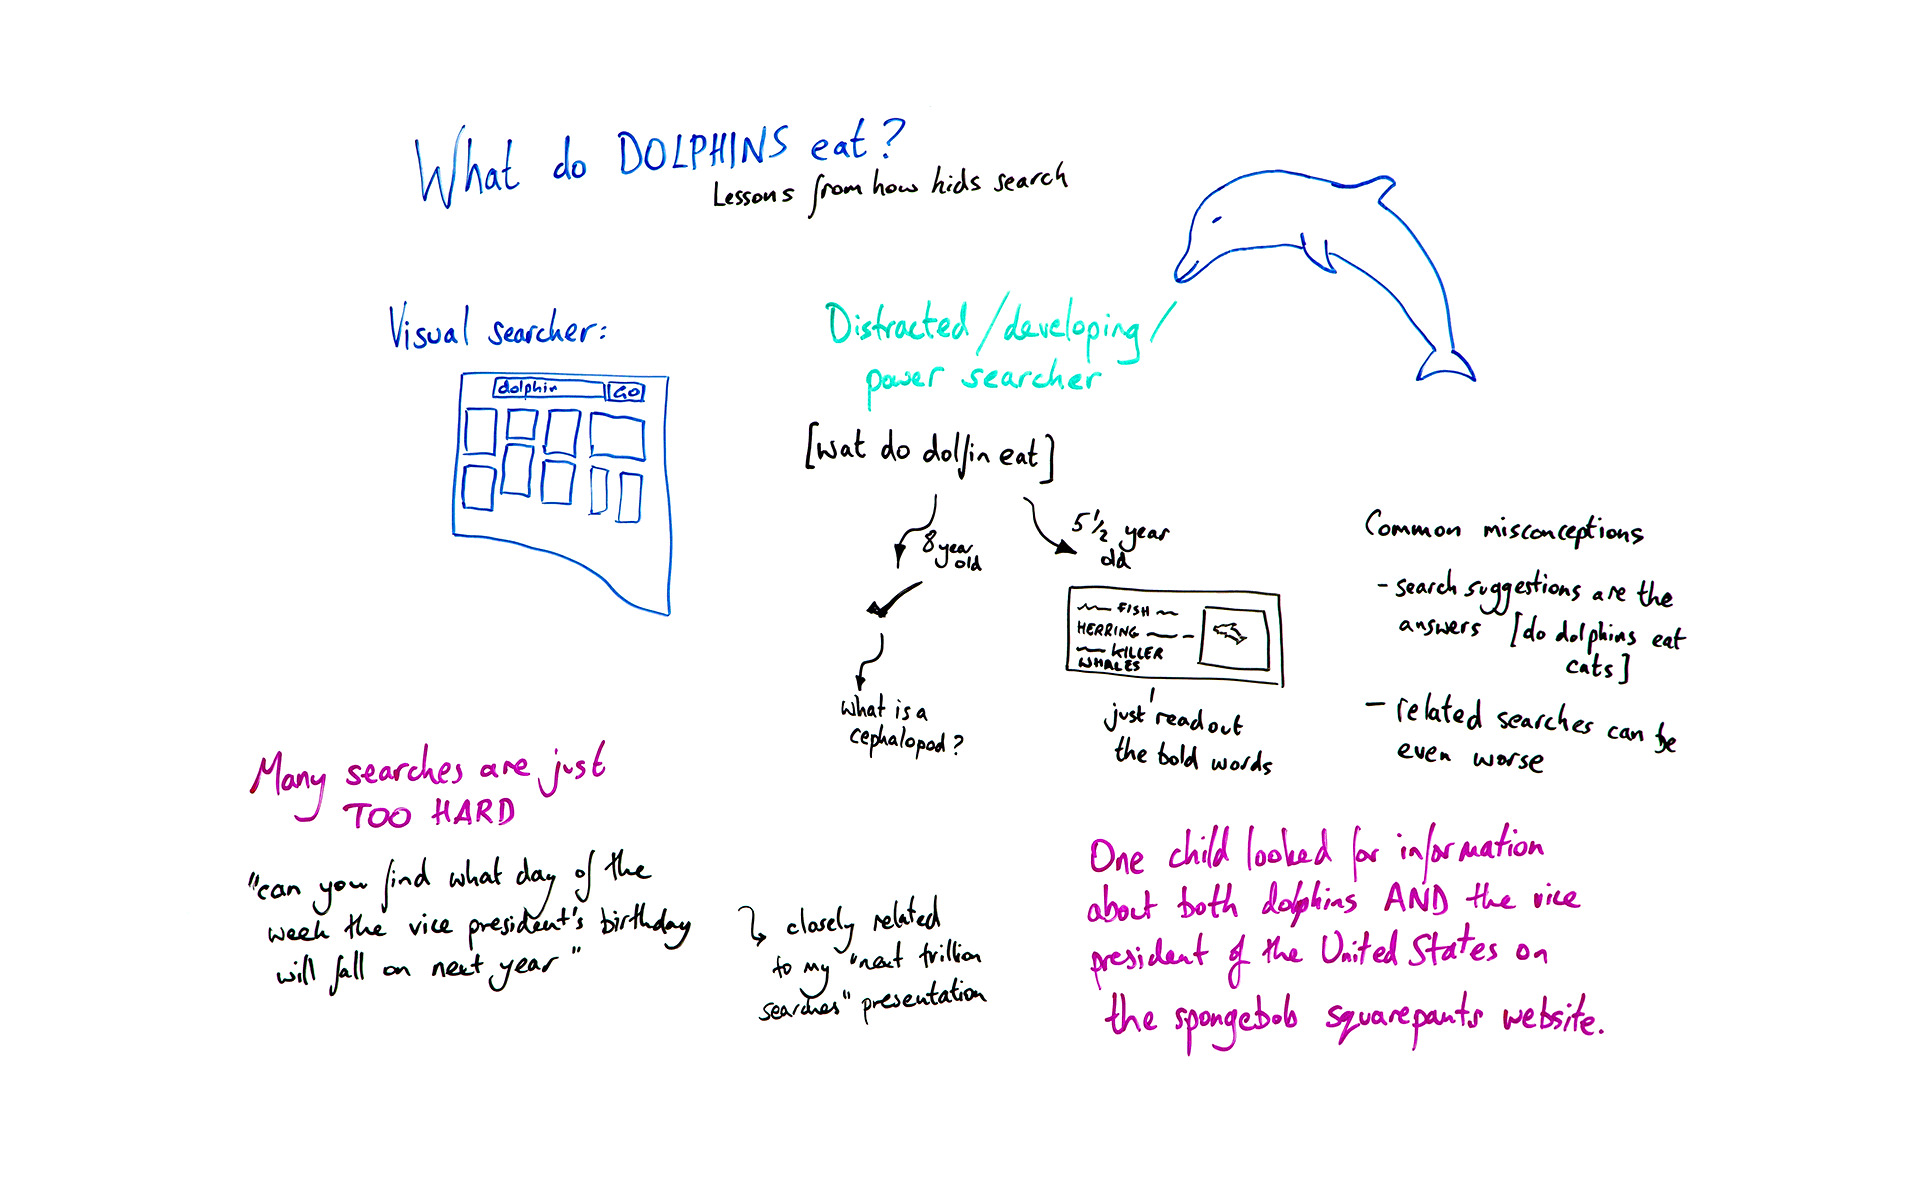 What do DOLPHINS eat?
Lessons from how kids search
Visual searcher:
dolphin GO
Distracted/developing/
power searcher
[wat do dolfin eat]
8 year
old
5 1/2 year
old
What is a
cephalopod?
FISH
HERRING
KILLER
WHALES
just read out
the bold words
Common misconceptions
- search suggestions are the
answers [do dolphins eat
cats]
- related searches can be
even worse
Many searches are just
TOO HARD
"can you find what day of the
week the vice president's birthday
will fall on next year"
closely related
to my "next trillion
searches" presentation
One child looked for information
about both dolphins AND the vice
president of the United States on
the spongebob squarepants website.